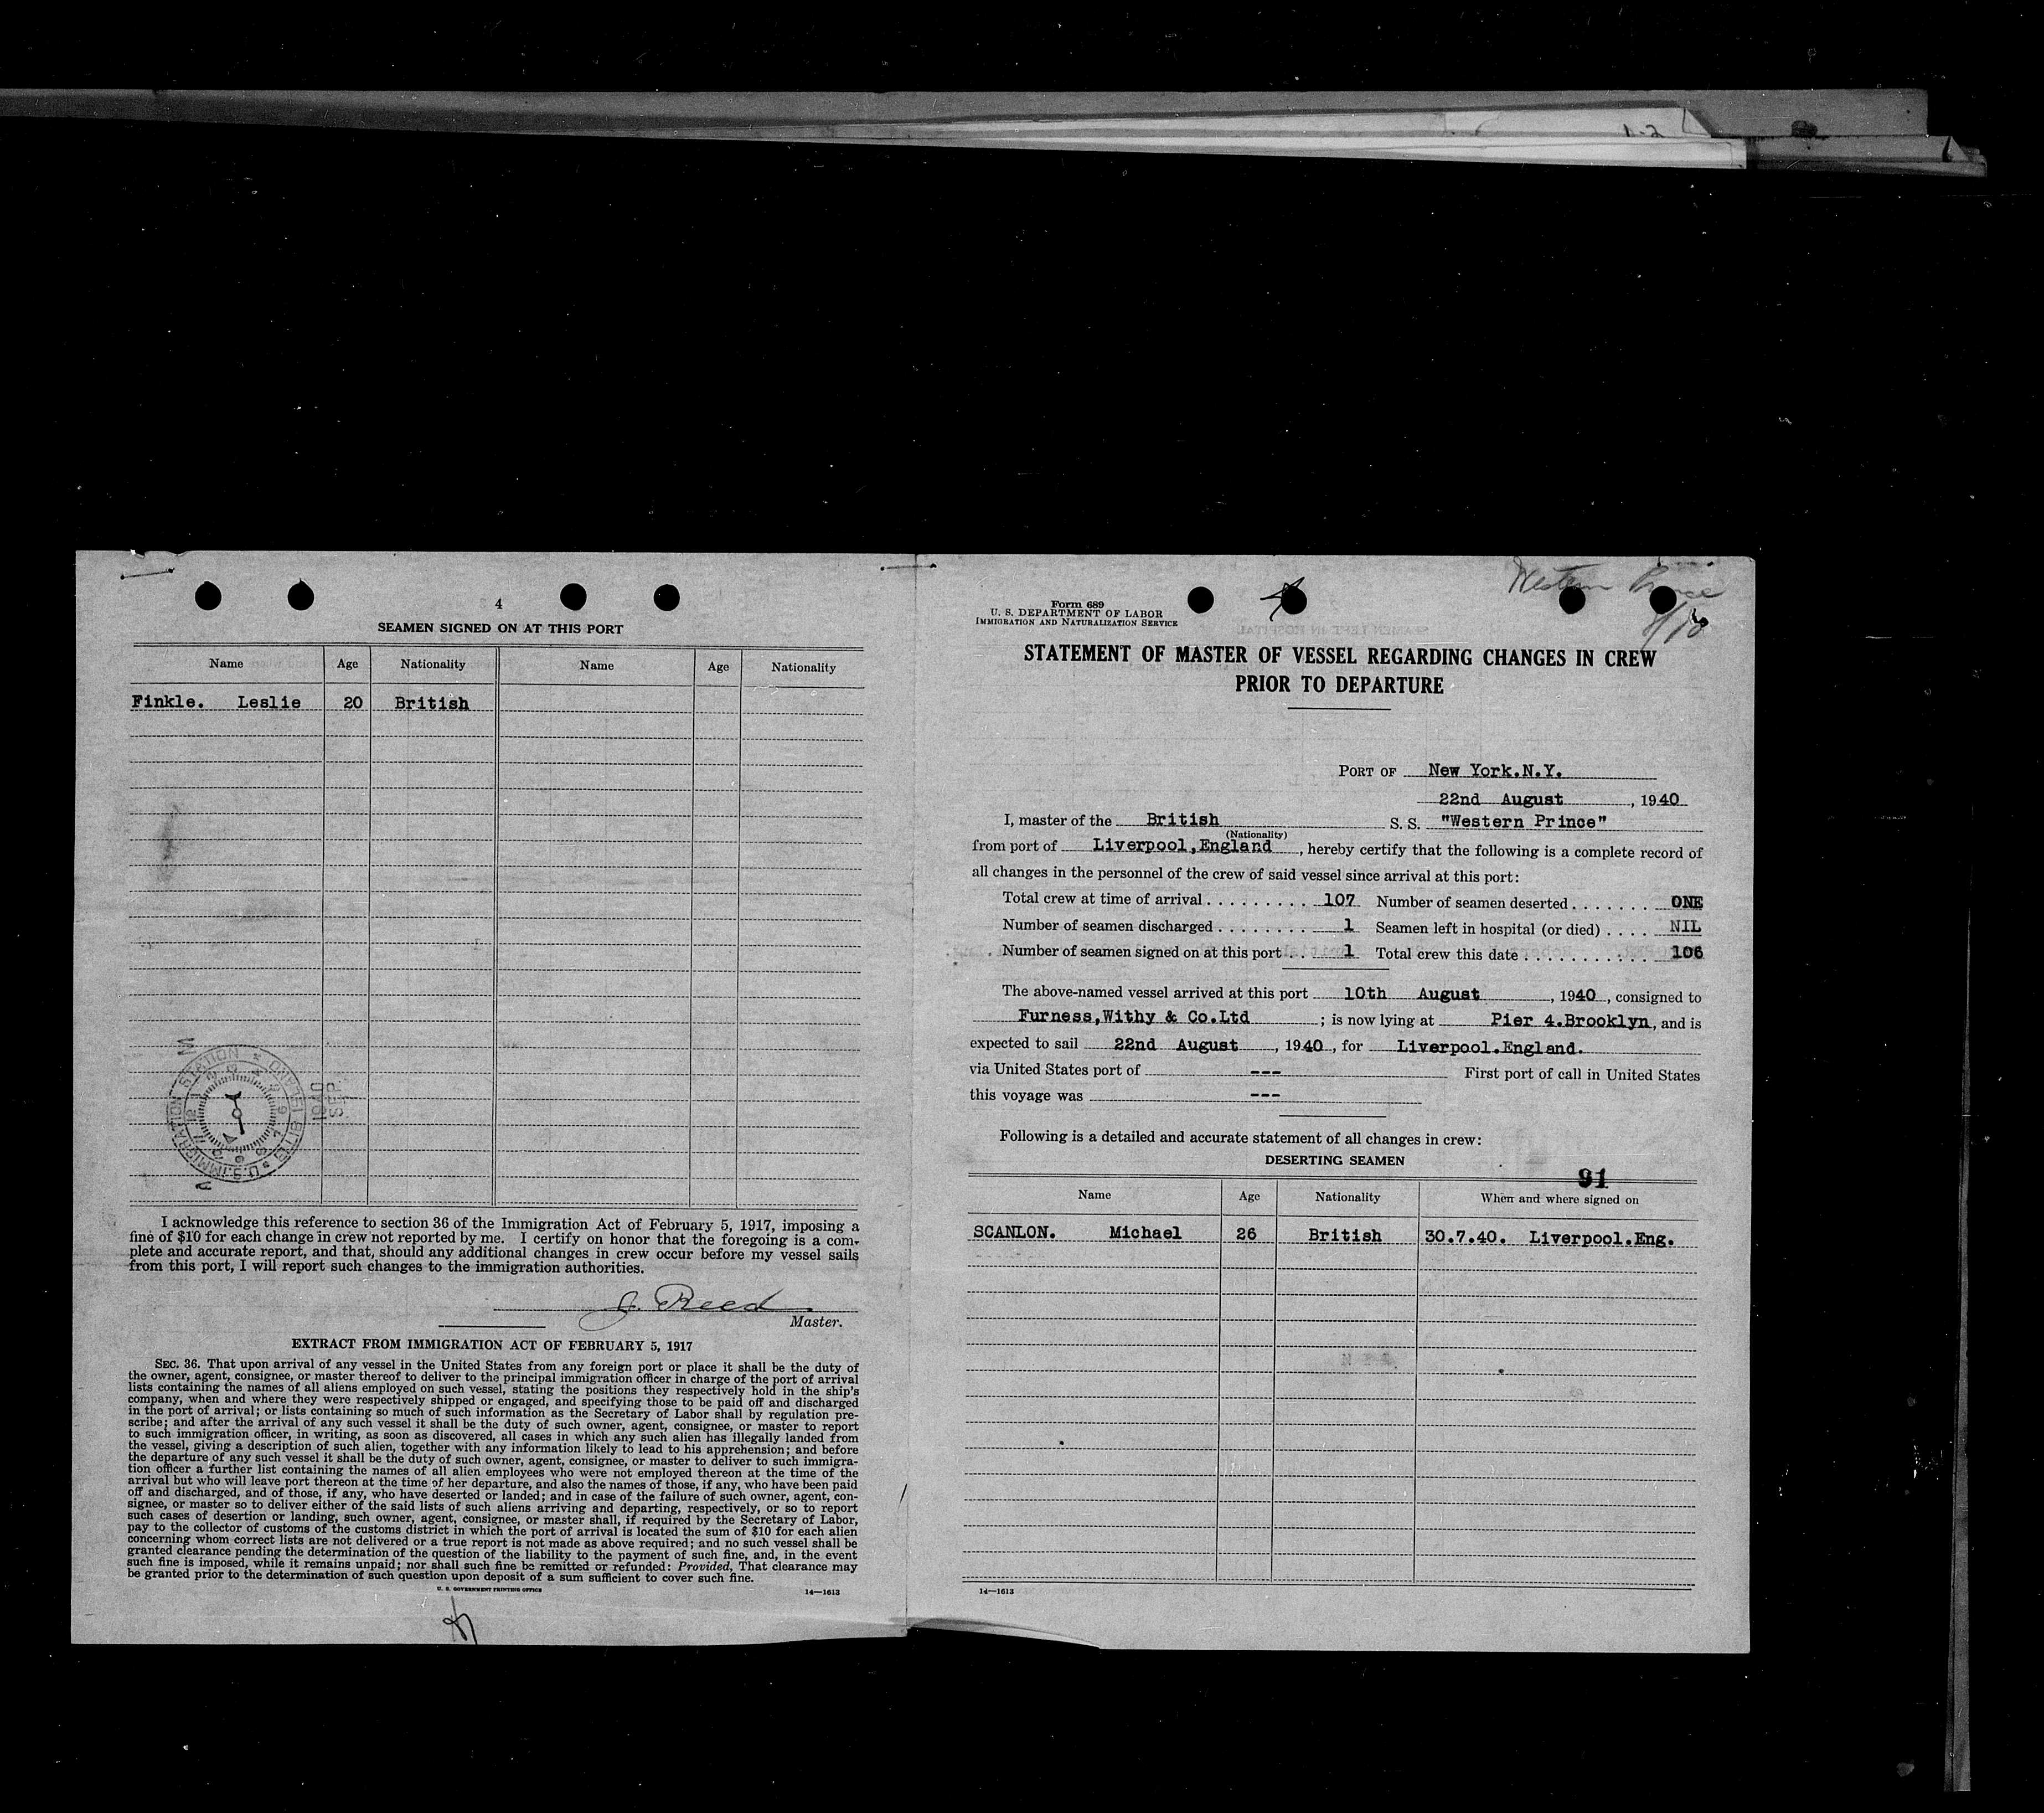 4
SEAMEN SIGNED ON AT THIS PORT
Name Age Nationality Name Age Nationality
Finkle. Leslie 20 British
U.S. IMMIGRATION STATION * ELLIS ISLAND *
1940
SEP
I acknowledge this reference to section 36 of the Immigration Act of February 5, 1917, imposing a
fine of $10 for each change in crew not reported by me. I certify on honor that the foregoing is a com-
plete and accurate report, and that, should any additional changes in crew occur before my vessel sails
from this port, I will report such changes to the immigration authorities.
J. Reed
Master.
EXTRACT FROM IMMIGRATION ACT OF FEBRUARY 5, 1917
SEC. 36. That upon arrival of any vessel in the United States from any foreign port or place it shall be the duty of
the owner, agent, consignee, or master thereof to deliver to the principal immigration officer in charge of the port of arrival
lists containing the names of all aliens employed on such vessel, stating the positions they respectively hold in the ship's
company, when and where they were respectively shipped or engaged, and specifying those to be paid off and discharged
in the port of arrival; or lists containing so much of such information as the Secretary of Labor shall by regulation pre-
scribe; and after the arrival of any such vessel it shall be the duty of such owner, agent, consignee, or master to report
to such immigration officer, in writing, as soon as discovered, all cases in which any such alien has illegally landed from
the vessel, giving a description of such alien, together with any information likely to lead to his apprehension; and before
the departure of any such vessel it shall be the duty of such owner, agent, consignee, or master to deliver to such immigra-
tion officer a further list containing the names of all alien employees who were not employed thereon at the time of the
arrival but who will leave port thereon at the time of her departure, and also the names of those, if any, who have been paid
off and discharged, and of those, if any, who have deserted or landed; and in case of the failure of such owner, agent, con-
signee, or master so to deliver either of the said lists of such aliens arriving and departing, respectively, or so to report
such cases of desertion or landing, such owner, agent, consignee, or master shall, if required by the Secretary of Labor,
pay to the collector of customs of the customs district in which the port of arrival is located the sum of $10 for each alien
concerning whom correct lists are not delivered or a true report is not made as above required; and no such vessel shall be
granted clearance pending the determination of the question of the liability to the payment of such fine, and, in the event
such fine is imposed, while it remains unpaid; nor shall such fine be remitted or refunded: Provided, That clearance may
be granted prior to the determination of such question upon deposit of a sum sufficient to cover such fine.
U. S. GOVERNMENT PRINTING OFFICE 14—1613
Western Prince
8/10
Form 689
U. S. DEPARTMENT OF LABOR
IMMIGRATION AND NATURALIZATION SERVICE
STATEMENT OF MASTER OF VESSEL REGARDING CHANGES IN CREW
PRIOR TO DEPARTURE
PORT OF New York.N.Y.
22nd August, 1940
I, master of the British S. S. "Western Prince"
(Nationality)
from port of Liverpool,England, hereby certify that the following is a complete record of
all changes in the personnel of the crew of said vessel since arrival at this port:
Total crew at time of arrival . . . . . . . . . 107 Number of seamen deserted . . . . . . . ONE
Number of seamen discharged . . . . . . . . 1 Seamen left in hospital (or died) . . . . NIL
Number of seamen signed on at this port . . 1 Total crew this date . . . . . . . . . . . 106
The above-named vessel arrived at this port 10th August, 1940, consigned to
Furness,Withy & Co.Ltd; is now lying at Pier 4.Brooklyn, and is
expected to sail 22nd August, 1940, for Liverpool.England.
via United States port of --- First port of call in United States
this voyage was ---
Following is a detailed and accurate statement of all changes in crew:
DESERTING SEAMEN
91
Name Age Nationality When and where signed on
SCANLON. Michael 26 British 30.7.40. Liverpool.Eng.
14—1613